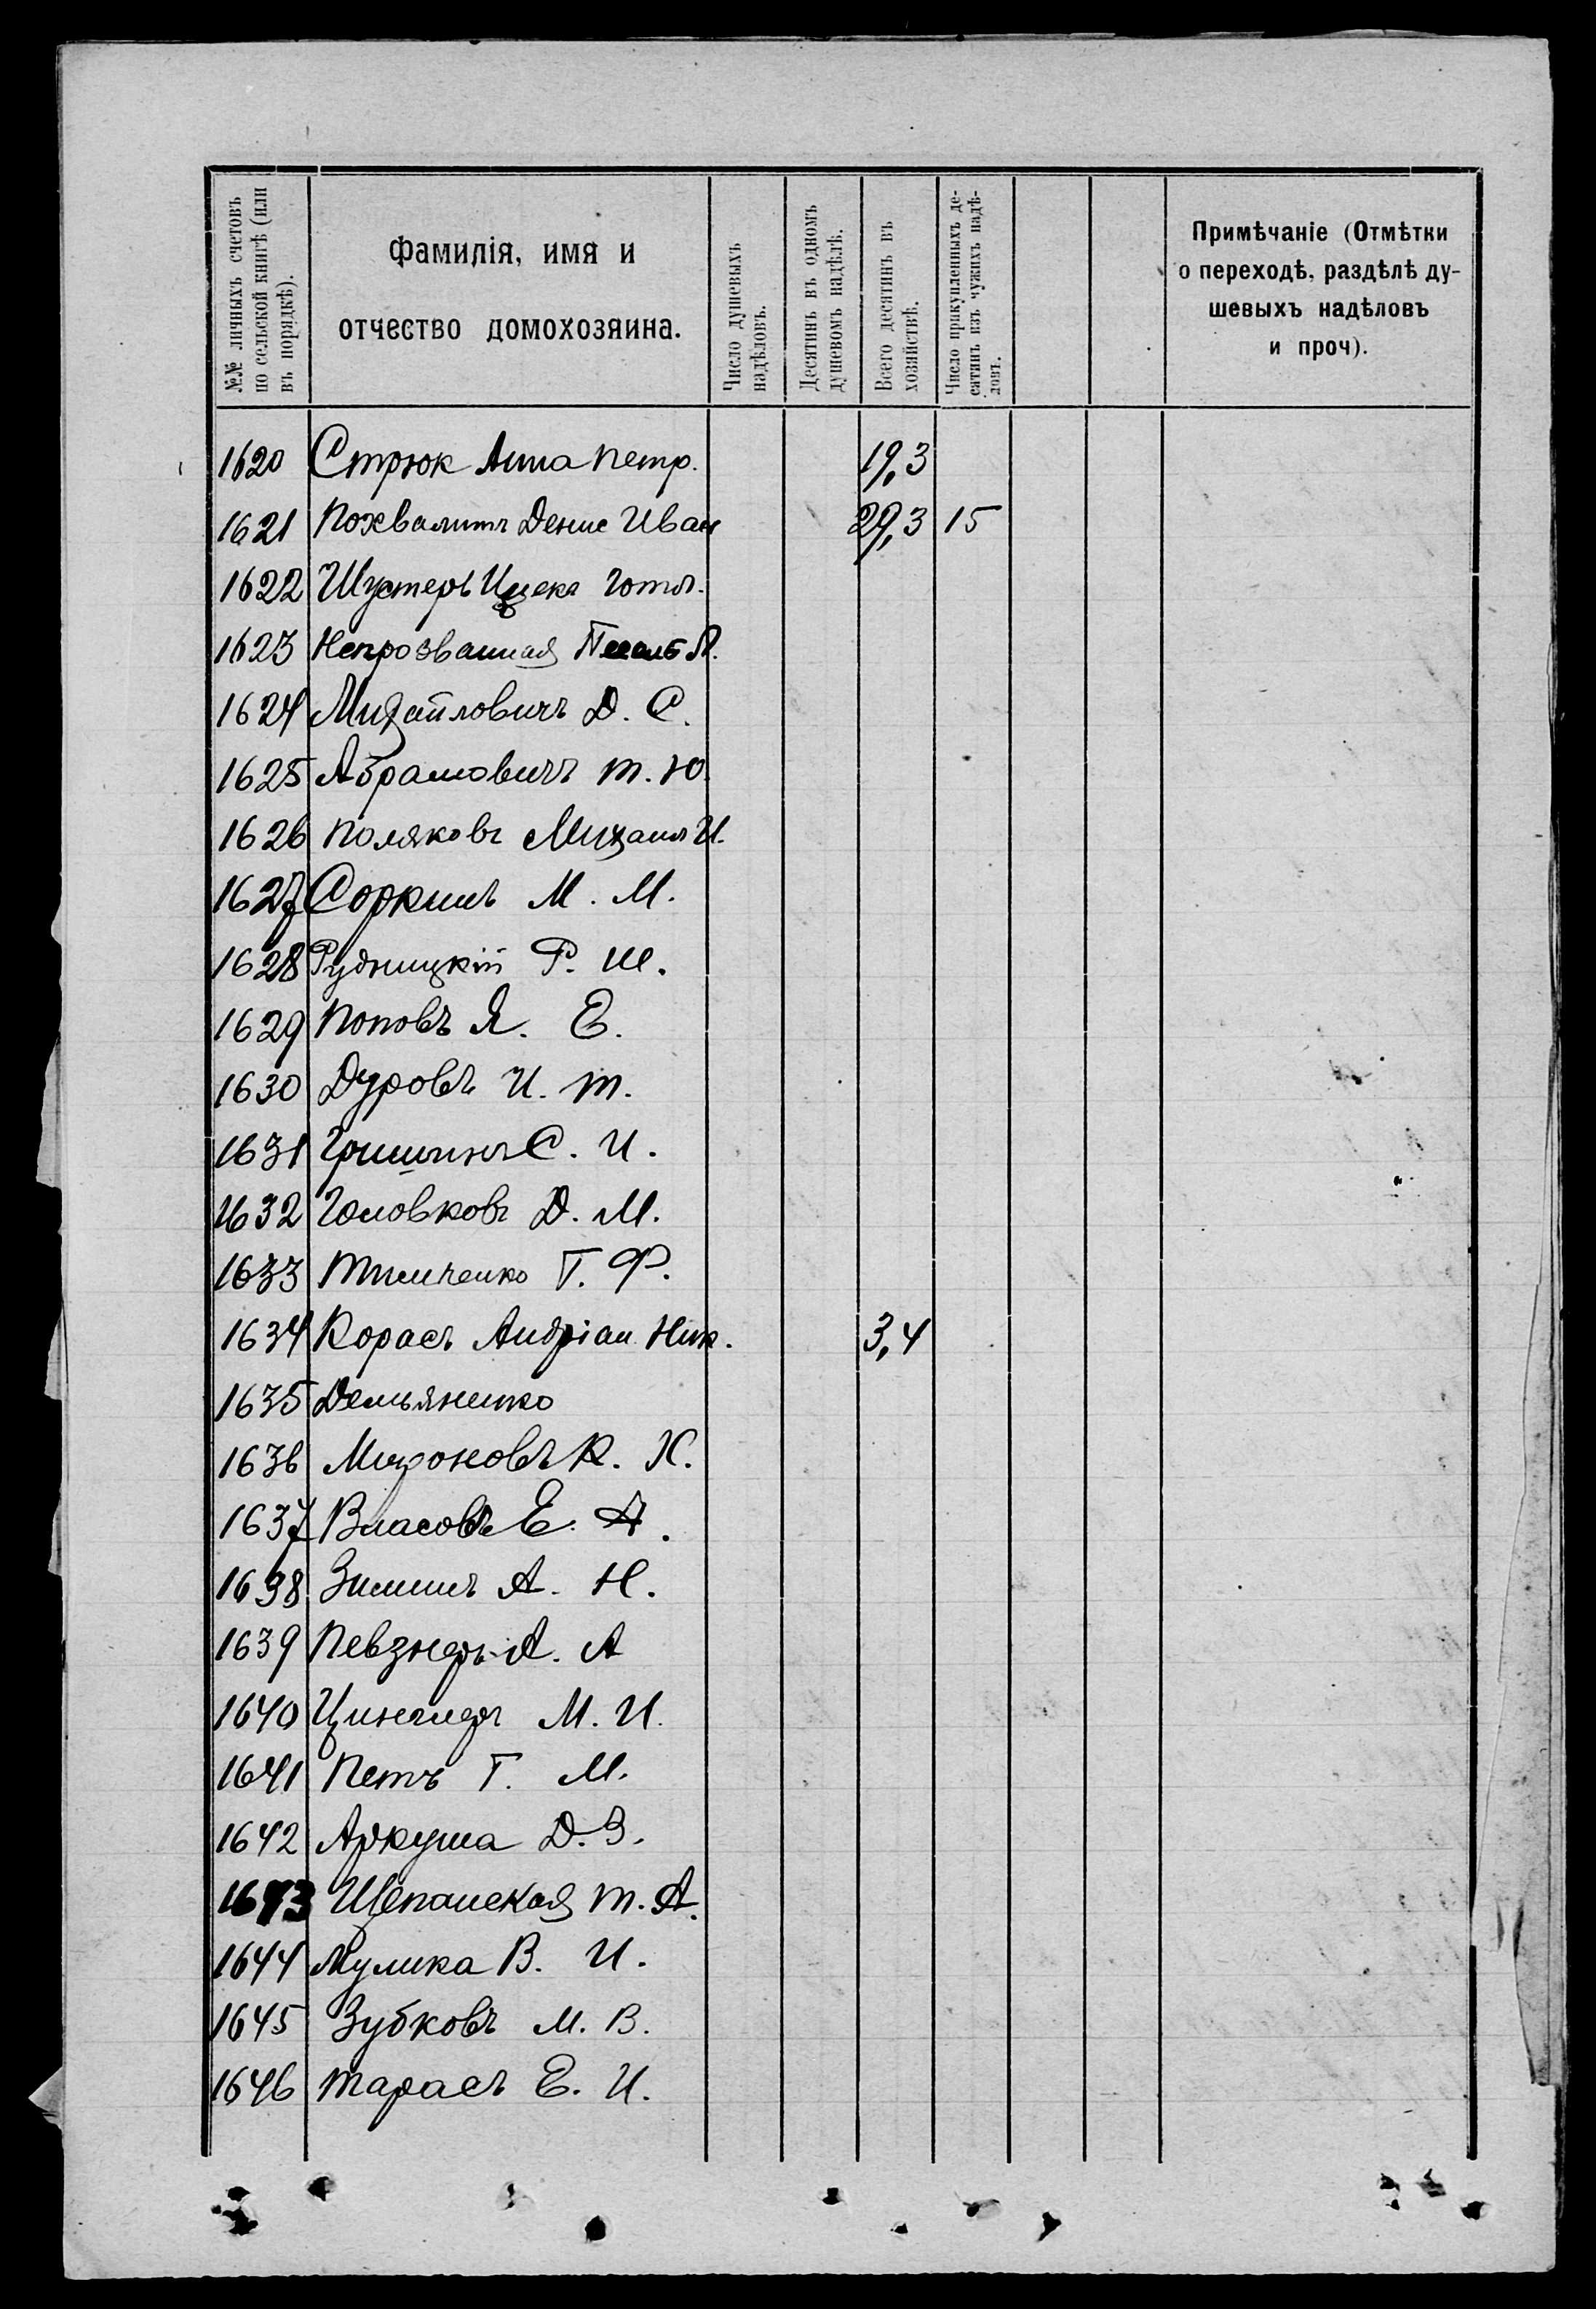 №№ личныхъ счетовъ
по сельской книгѣ (или
въ порядкѣ).
Фамилія, имя и
отчество домохозяина.
Число душевыхъ
надѣловъ.
Десятинъ въ одномъ
душевомъ надѣлѣ.
Всего десятинъ въ
хозяйствѣ.
Число прикупленныхъ де-
сятинъ изъ чужихъ надѣ-
ловъ.
Примѣчаніе (Отмѣтки
о переходѣ, раздѣлѣ ду-
шевыхъ надѣловъ
и проч).
1620 Стрюк Анна Петр. 19,3
1621 Похвалитъ Денис Иван 29,3 15
1622 Шустеръ Готл.
1623 Непрозванная П.
1624 Михайловичъ Д. С.
1625 Абрамовичъ Т. Ю.
1626 Поляковъ Михаил И.
1627 Соркинъ М. М.
1628 Рудницкій Р. Ш.
1629 Поповъ Я. Е.
1630 Дуровъ И. Т.
1631 Гришинъ С. И.
1632 Головковъ Д. М.
1633 Тимченко Г. Ф.
1634 Корасъ Андріан Ник. 3,4
1635 Демьяненко
1636 Мироновъ К. К.
1637 Власовъ Е. А.
1638 Зиминъ А. Н.
1639 Певзнеръ А. А
1640 Цинглеръ М. И.
1641 Петъ Г. М.
1642 Аркуша Д. З.
1643 Щепанская Т. А.
1644 Мулика В. И.
1645 Зубковъ М. В.
1646 Тарасъ Е. И.